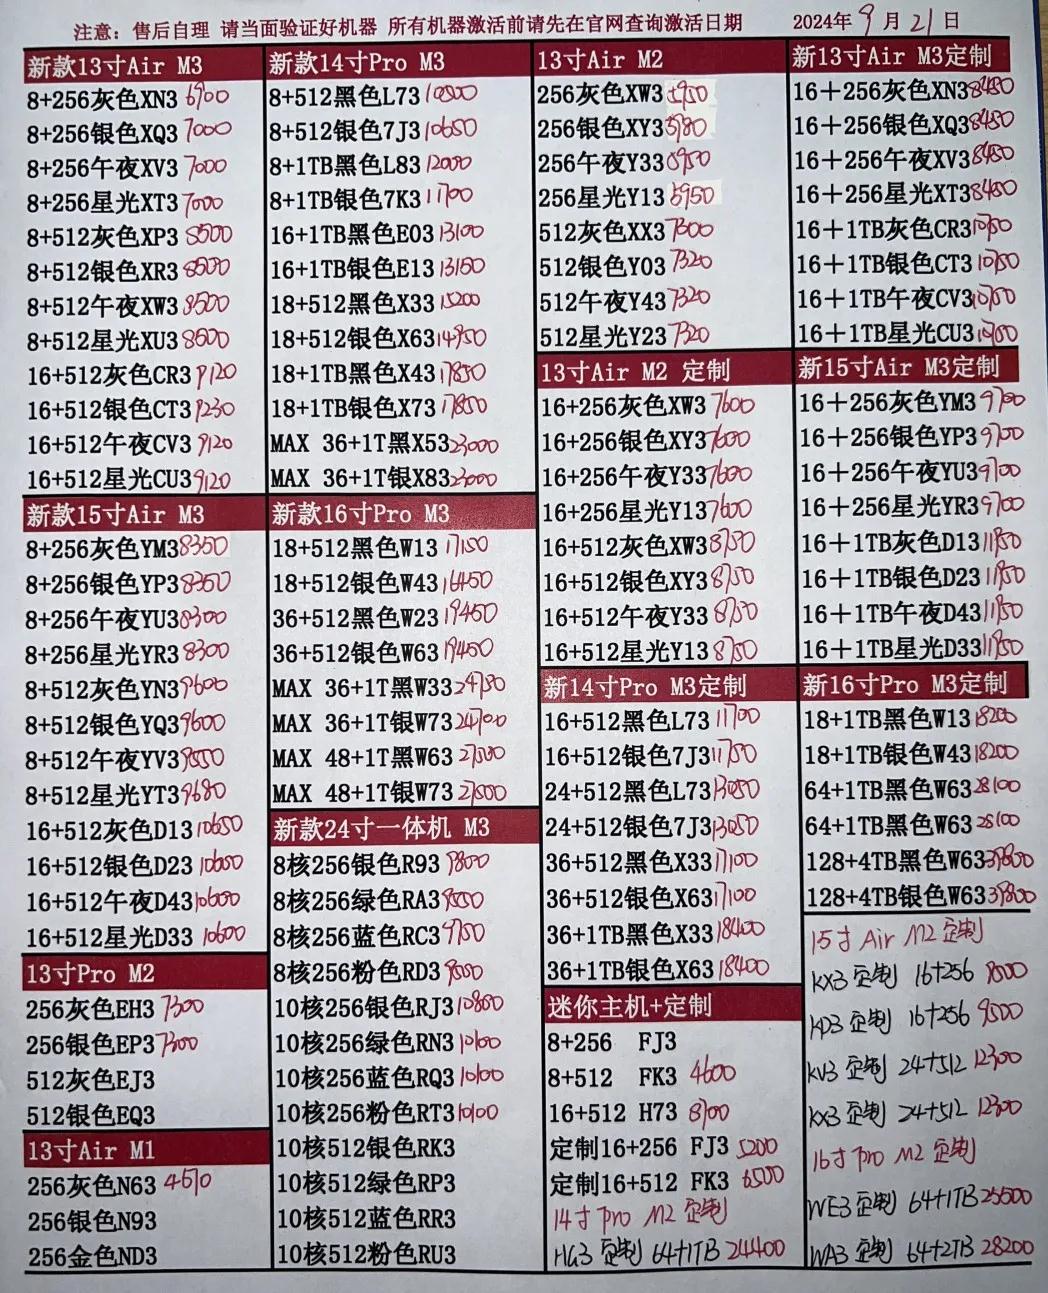 注意：售后自理 请当面验证好机器 所有机器激活前请先在官网查询激活日期 2024年9月21日
新款13寸Air M3
8+256灰色XN3 6900
8+256银色XQ3 7000
8+256午夜XV3 7000
8+256星光XT3 7000
8+512灰色XP3 8500
8+512银色XR3 8500
8+512午夜XW3 8500
8+512星光XU3 8500
16+512灰色CR3 9120
16+512银色CT3 9230
16+512午夜CV3 9120
16+512星光CU3 9120
新款15寸Air M3
8+256灰色YM3 8350
8+256银色YP3 8350
8+256午夜YU3 8300
8+256星光YR3 8300
8+512灰色YN3 9600
8+512银色YQ3 9600
8+512午夜YV3 9550
8+512星光YT3 9680
16+512灰色D13 10650
16+512银色D23 10600
16+512午夜D43 10600
16+512星光D33 10600
13寸Pro M2
256灰色EH3 7300
256银色EP3 7300
512灰色EJ3
512银色EQ3
13寸Air M1
256灰色N63 4670
256银色N93
256金色ND3
新款14寸Pro M3
8+512黑色L73 10500
8+512银色7J3 10650
8+1TB黑色L83 12000
8+1TB银色7K3 11700
16+1TB黑色E03 13100
16+1TB银色E13 13150
18+512黑色X33 15200
18+512银色X63 14950
18+1TB黑色X43 17850
18+1TB银色X73 17850
MAX 36+1T黑X53 23000
MAX 36+1T银X83 23000
新款16寸Pro M3
18+512黑色W13 17150
18+512银色W43 16450
36+512黑色W23 19450
36+512银色W63 19450
MAX 36+1T黑W33 24750
MAX 36+1T银W73 24700
MAX 48+1T黑W63 27500
MAX 48+1T银W73 27500
新款24寸一体机 M3
8核256银色R93 9800
8核256绿色RA3 9550
8核256蓝色RC3 9750
8核256粉色RD3 9550
10核256银色RJ3 10800
10核256绿色RN3 10100
10核256蓝色RQ3 10100
10核256粉色RT3 10100
10核512银色RK3
10核512绿色RP3
10核512蓝色RR3
10核512粉色RU3
13寸Air M2
256灰色XW3 5950
256银色XY3 5980
256午夜Y33 5950
256星光Y13 5950
512灰色XX3 7300
512银色Y03 7320
512午夜Y43 7320
512星光Y23 7320
13寸Air M2 定制
16+256灰色XW3 7600
16+256银色XY3 7600
16+256午夜Y33 7600
16+256星光Y13 7600
16+512灰色XW3 8750
16+512银色XY3 8750
16+512午夜Y33 8750
16+512星光Y13 8750
新14寸Pro M3定制
16+512黑色L73 11700
16+512银色7J3 11750
24+512黑色L73 13050
24+512银色7J3 13050
36+512黑色X33 17100
36+512银色X63 17100
36+1TB黑色X33 18400
36+1TB银色X63 18400
迷你主机+定制
8+256 FJ3
8+512 FK3 4600
16+512 H73 8700
定制16+256 FJ3 5200
定制16+512 FK3 6500
14寸 Pro M2 定制
HG3 定制 64+1TB 24400
新13寸Air M3定制
16＋256灰色XN3 8450
16＋256银色XQ3 8450
16＋256午夜XV3 8450
16＋256星光XT3 8450
16＋1TB灰色CR3 10750
16＋1TB银色CT3 10750
16＋1TB午夜CV3 10750
16＋1TB星光CU3 10700
新15寸Air M3定制
16＋256灰色YM3 9700
16＋256银色YP3 9700
16＋256午夜YU3 9700
16＋256星光YR3 9700
16＋1TB灰色D13 11950
16＋1TB银色D23 11950
16＋1TB午夜D43 11950
16＋1TB星光D33 11950
新16寸Pro M3定制
18+1TB黑色W13 18200
18+1TB银色W43 18200
64+1TB黑色W63 28100
64+1TB黑色W63 28100
128+4TB黑色W63 39800
128+4TB银色W63 39800
15寸 Air M2 定制
KX3 定制 16+256 9500
KP3 定制 16+256 9500
KV3 定制 24+512 12300
KX3 定制 24+512 12300
16寸 Pro M2 定制
WE3 定制 64+1TB 25500
WA3 定制 64+2TB 28200